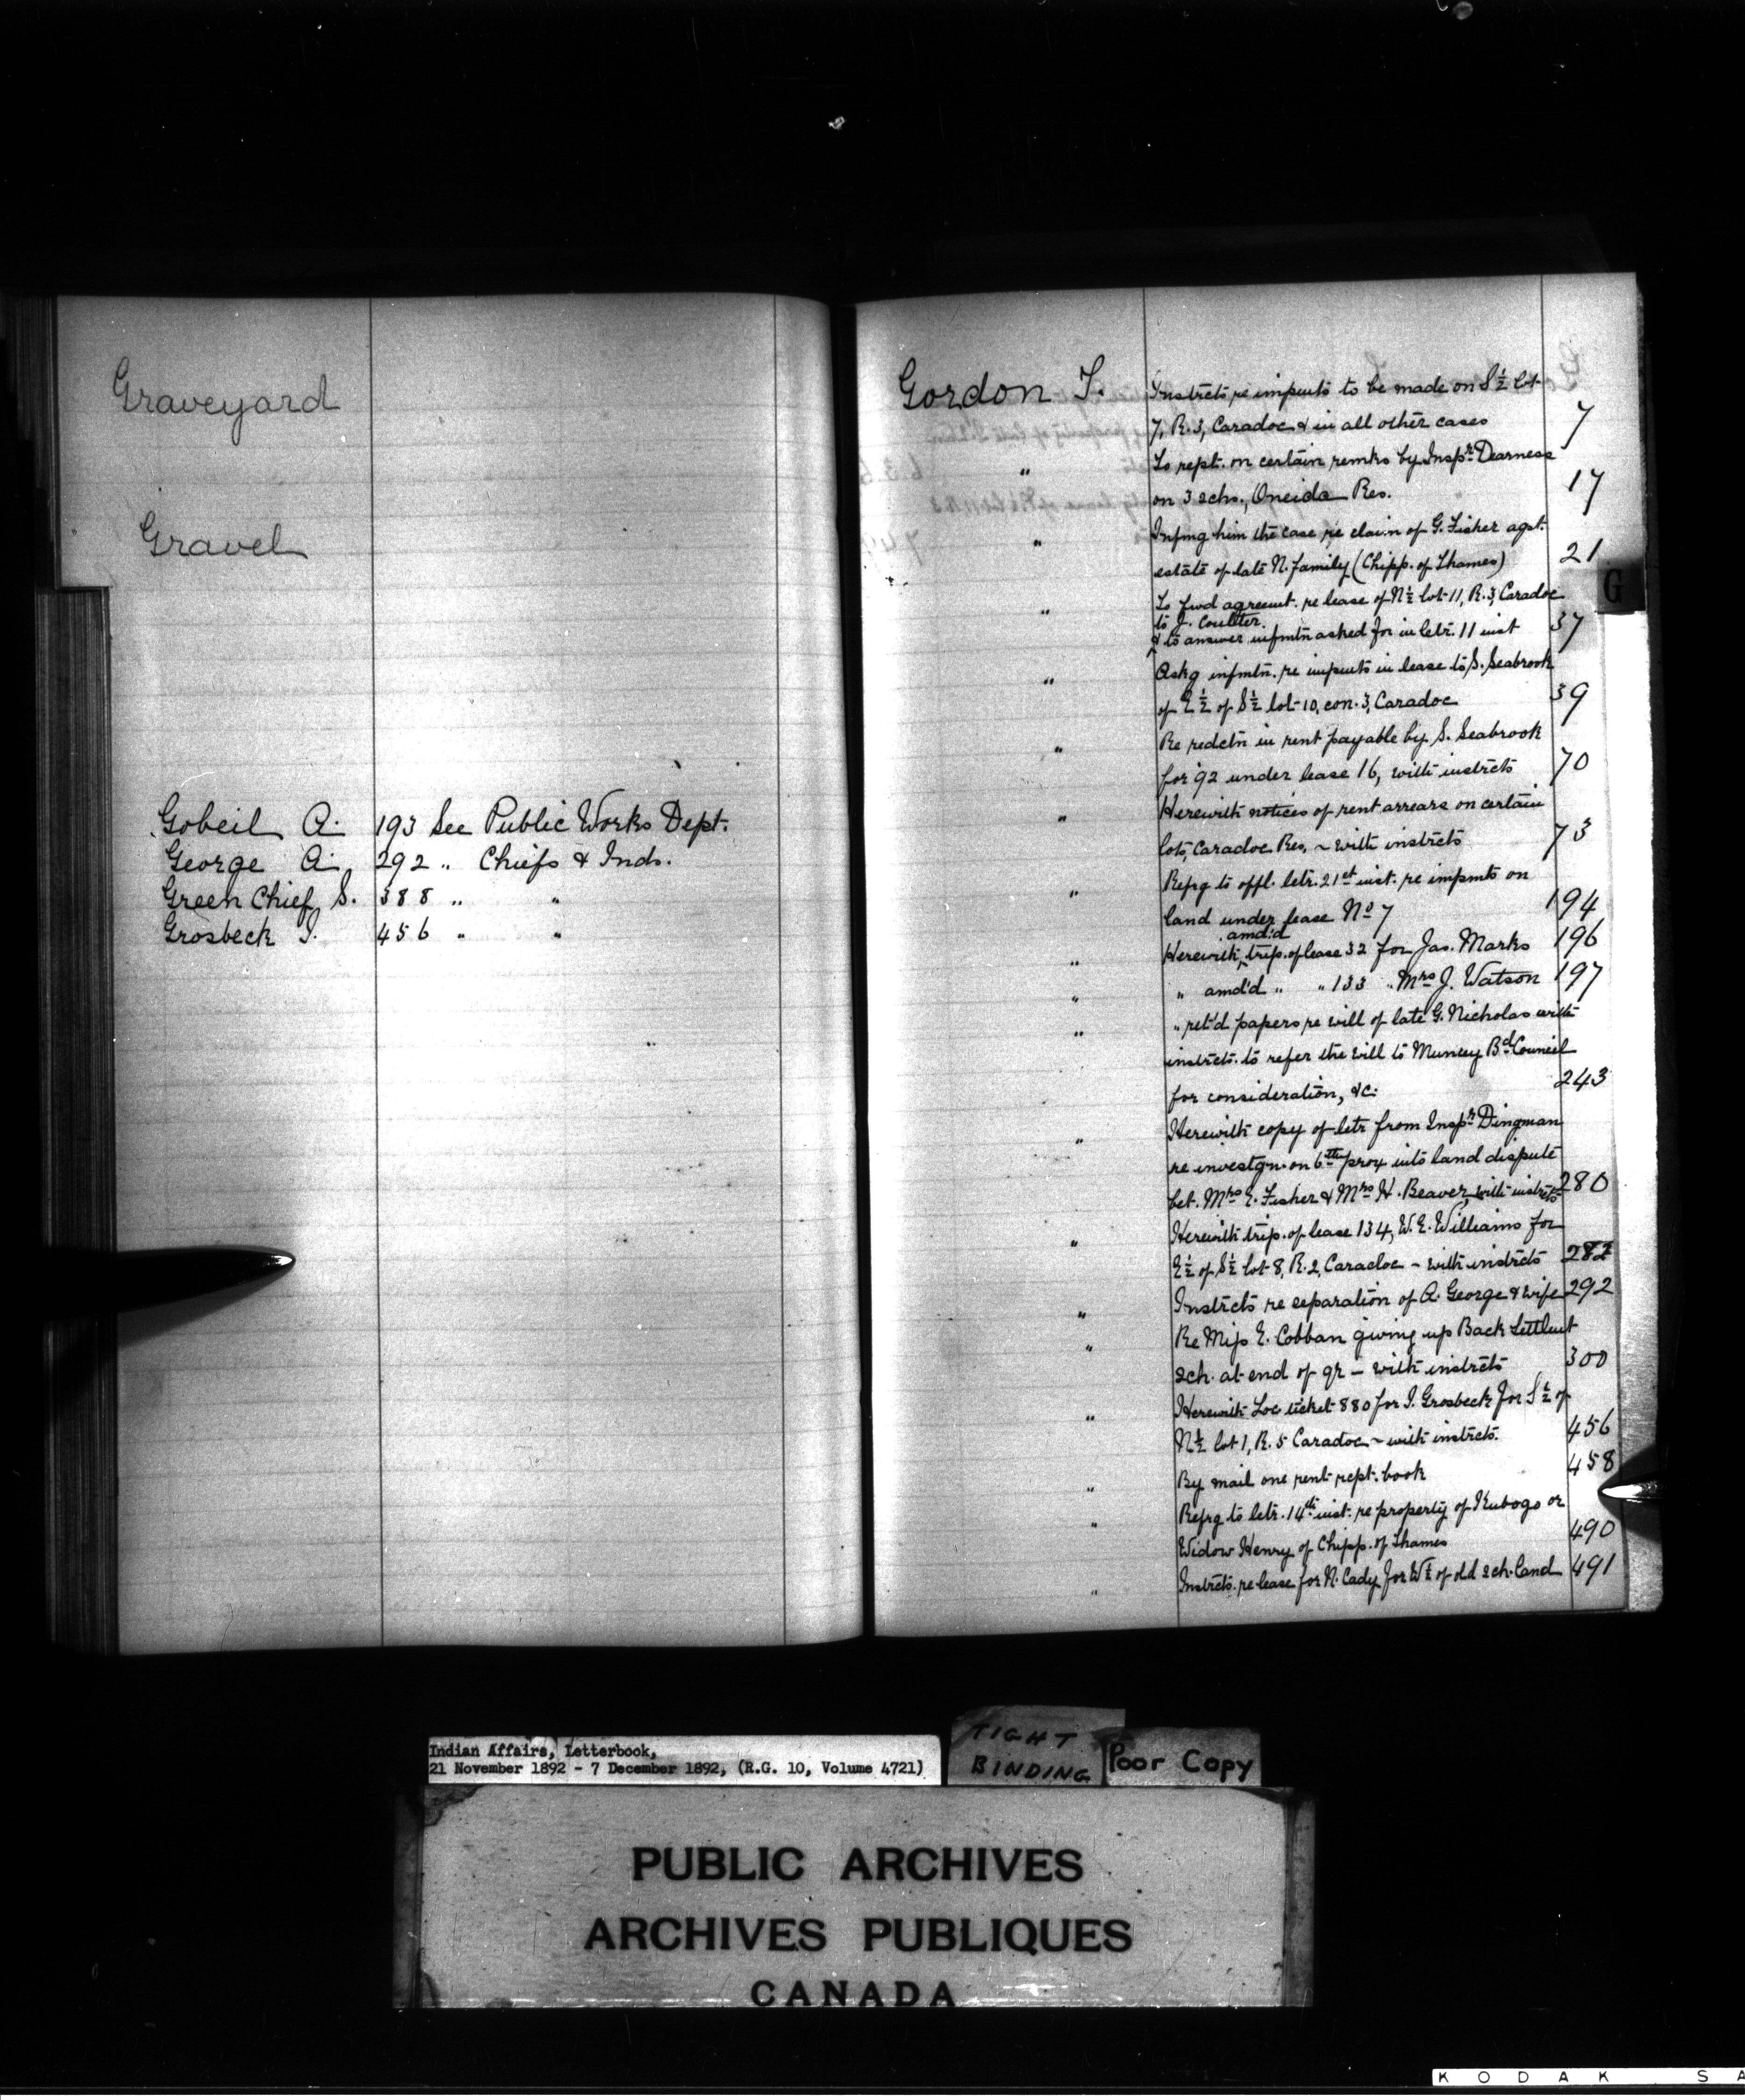 Graveyard
Gravel
Gobeil A. 193 See Public Works Dept.
George A. 292 " Chiefs & Inds.
Green Chief S. 388 " "
Grosbeck I. 456 " "
Gordon T. Instrcts re impmts to be made on S½ lot
7, R. 3, Caradoc & in all other cases 7
" To rept. on certain remks by Inspr. Dearness
on 3 schs., Oneida Res. 17
" Infmg him the case re claim of G. Fisher agst.
estate of late N. family (Chipp. of Thames) 21
" To fwd agreemt. re lease of N½ lot 11, R. 3, Caradoc
to J. Coulter.
& to answer infmtn asked for in letr. 11 inst 37
" Askg infmtn. re impmts in lease to S. Seabrook
of E½ of S½ lot 10, con. 3, Caradoc 39
" Re redctn in rent payable by S. Seabrook
for '92 under lease 16, with instrcts 70
" Herewith notices of rent arrears on certain
lots, Caradoc Res. ~ with instrcts 73
" Refrg to offl. letr. 21st inst. re impmts on
land under lease No 7 194
" Herewith amd'd trip. of lease 32 for Jas. Marks 196
" " amd'd " " 133 " Mrs J. Watson 197
" " ret'd papers re will of late G. Nicholas with
instrcts. to refer the will to Muncey Bd Council
for consideration, &c. 243
" Herewith copy of letr from Inspr Dingman
re investgn. on 6th prox into land dispute
bet. Mrs E. Fisher & Mrs H. Beaver, with instrcts 280
" Herewith trip. of lease 134, W. E. Williams for
E½ of S½ lot 8, R. 2, Caradoc ~ with instrcts 282
" Instrcts re separation of A. George & wife 292
" Re Miss E. Cobban giving up Back Settlmt
sch. at end of qr – with instrcts 300
" Herewith Loc ticket 880 for I. Grosbeck for S½ of
N½ lot 1, R. 5 Caradoc ~ with instrcts. 456
" By mail one rent rcpt. book 458
" Refrg to letr. 14th inst. re property of Kubogo or
Widow Henry of Chipp. of Thames 490
" Instrcts. re lease for N. Cady for W½ of old sch. land 491
G
Indian Affairs, Letterbook,
21 November 1892 - 7 December 1892, (R.G. 10, Volume 4721)
TIGHT
BINDING
Poor Copy
PUBLIC ARCHIVES
ARCHIVES PUBLIQUES
CANADA
KODAK SA